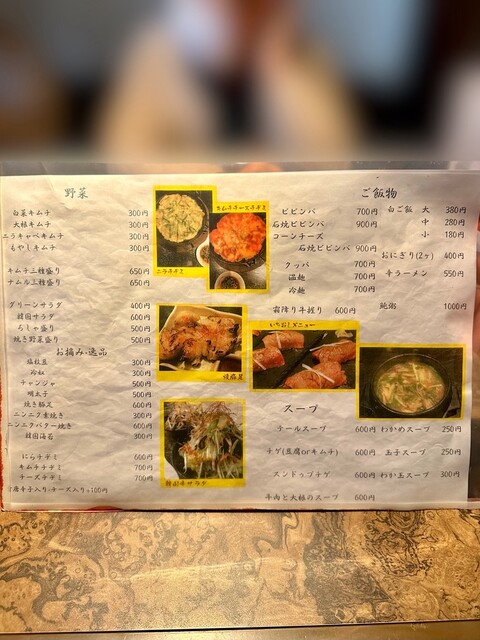 野菜
白菜キムチ 300円
大根キムチ 300円
ニラキャベキムチ 300円
もやしキムチ 300円
キムチ三種盛り 650円
ナムル三種盛り 650円
グリーンサラダ 400円
韓国サラダ 600円
ちしゃ盛り 500円
焼き野菜盛り 500円
お摘み・逸品
塩枝豆 300円
冷奴 300円
チャンジャ 500円
明太子 500円
焼き豚足 600円
ニンニク素焼き 300円
ニンニクバター焼き 600円
韓国海苔 300円
にらチヂミ 600円
キムチチヂミ 700円
チーズチヂミ 700円
(唐辛子入り・チーズ入り+100円
ニラチヂミ
キムチチーズチヂミ
焼豚足
特製ネギサラダ
いちおしメニュー
ご飯物
ビビンバ 700円
石焼ビビンバ 900円
コーンチーズ
石焼ビビンバ 900円
クッパ 700円
温麺 700円
冷麺 700円
霜降り牛握り 600円
白ご飯 大 380円
中 280円
小 180円
おにぎり(2ヶ) 400円
辛ラーメン 550円
鮑粥 1000円
スープ
テールスープ 600円
チゲ(豆腐orキムチ) 600円
スンドゥブチゲ 600円
牛肉と大根のスープ 600円
わかめスープ 250円
玉子スープ 250円
わか玉スープ 300円